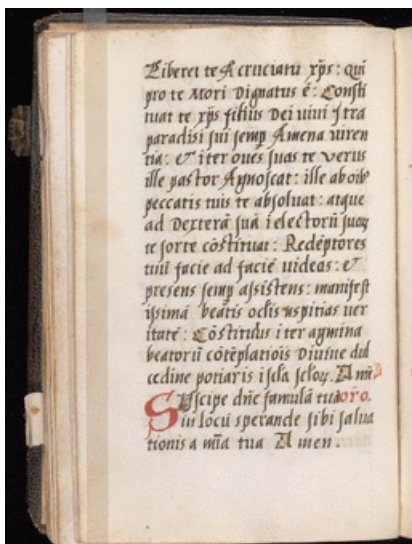 Liberet te A cruciatu xp̄s : Qui
pro te Mori Dignatus ē : Consti
tuat te xp̄s filius Dei uiui ītra
paradisi sui semꝑ Amena uiren
tia : & īter oues suas te verus
ille pastor Agnoscat : ille ab oīb
peccatis tuis te absoluat : atque
ad Dexterā suā ī electorū suoꝝ
te sorte cōstituat : Redēptorē
tuū facie ad faciē uideas : &
presens semꝑ assistens : manifest
issimā beatis oclis aspitias ver
itatē : Cōstitutus īter agmina
beatorū cōtēplatiōis Diuine dul
cedine potiaris ī scl̄a scl̄oꝝ. Amē
Suscipe dn̄e famulā tuā oro.
in locū sperande sibi salua
tionis a mīa tua Amen.